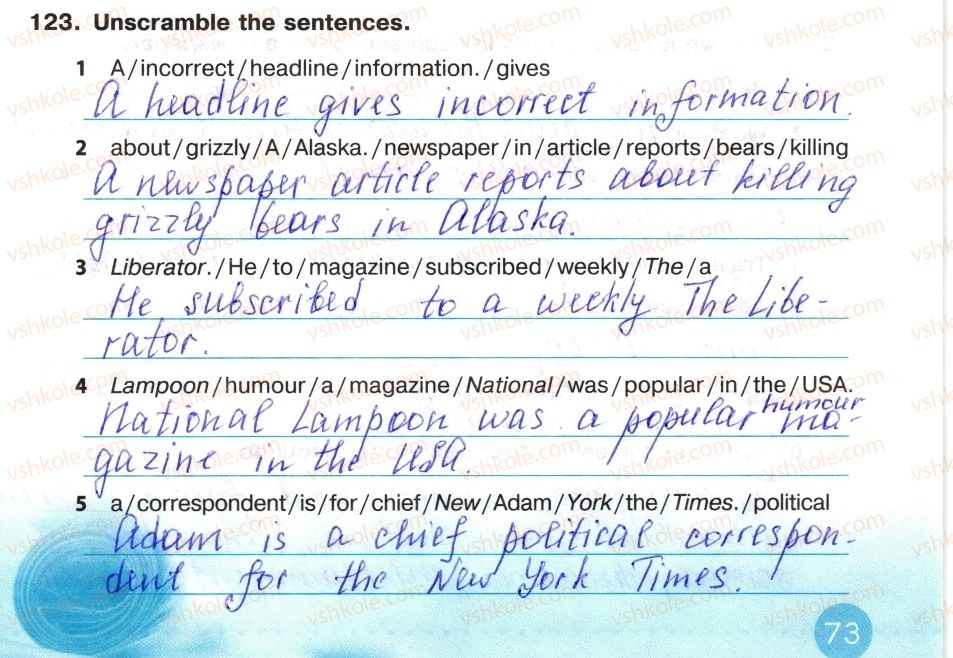 123. Unscramble the sentences.
1 A/incorrect/headline/information./gives
A headline gives incorrect information.
2 about/grizzly/A/Alaska./newspaper/in/article/reports/bears/killing
A newspaper article reports about killing
grizzly bears in Alaska.
3 Liberator./He/to/magazine/subscribed/weekly/The/a
He subscribed to a weekly The Libe-
rator.
4 Lampoon/humour/a/magazine/National/was/popular/in/the/USA.
National Lampoon was a popular humour ma-
gazine in the USA.
5 a/correspondent/is/for/chief/New/Adam/York/the/Times./political
Adam is a chief political correspon-
dent for the New York Times.
73
vshkole.com